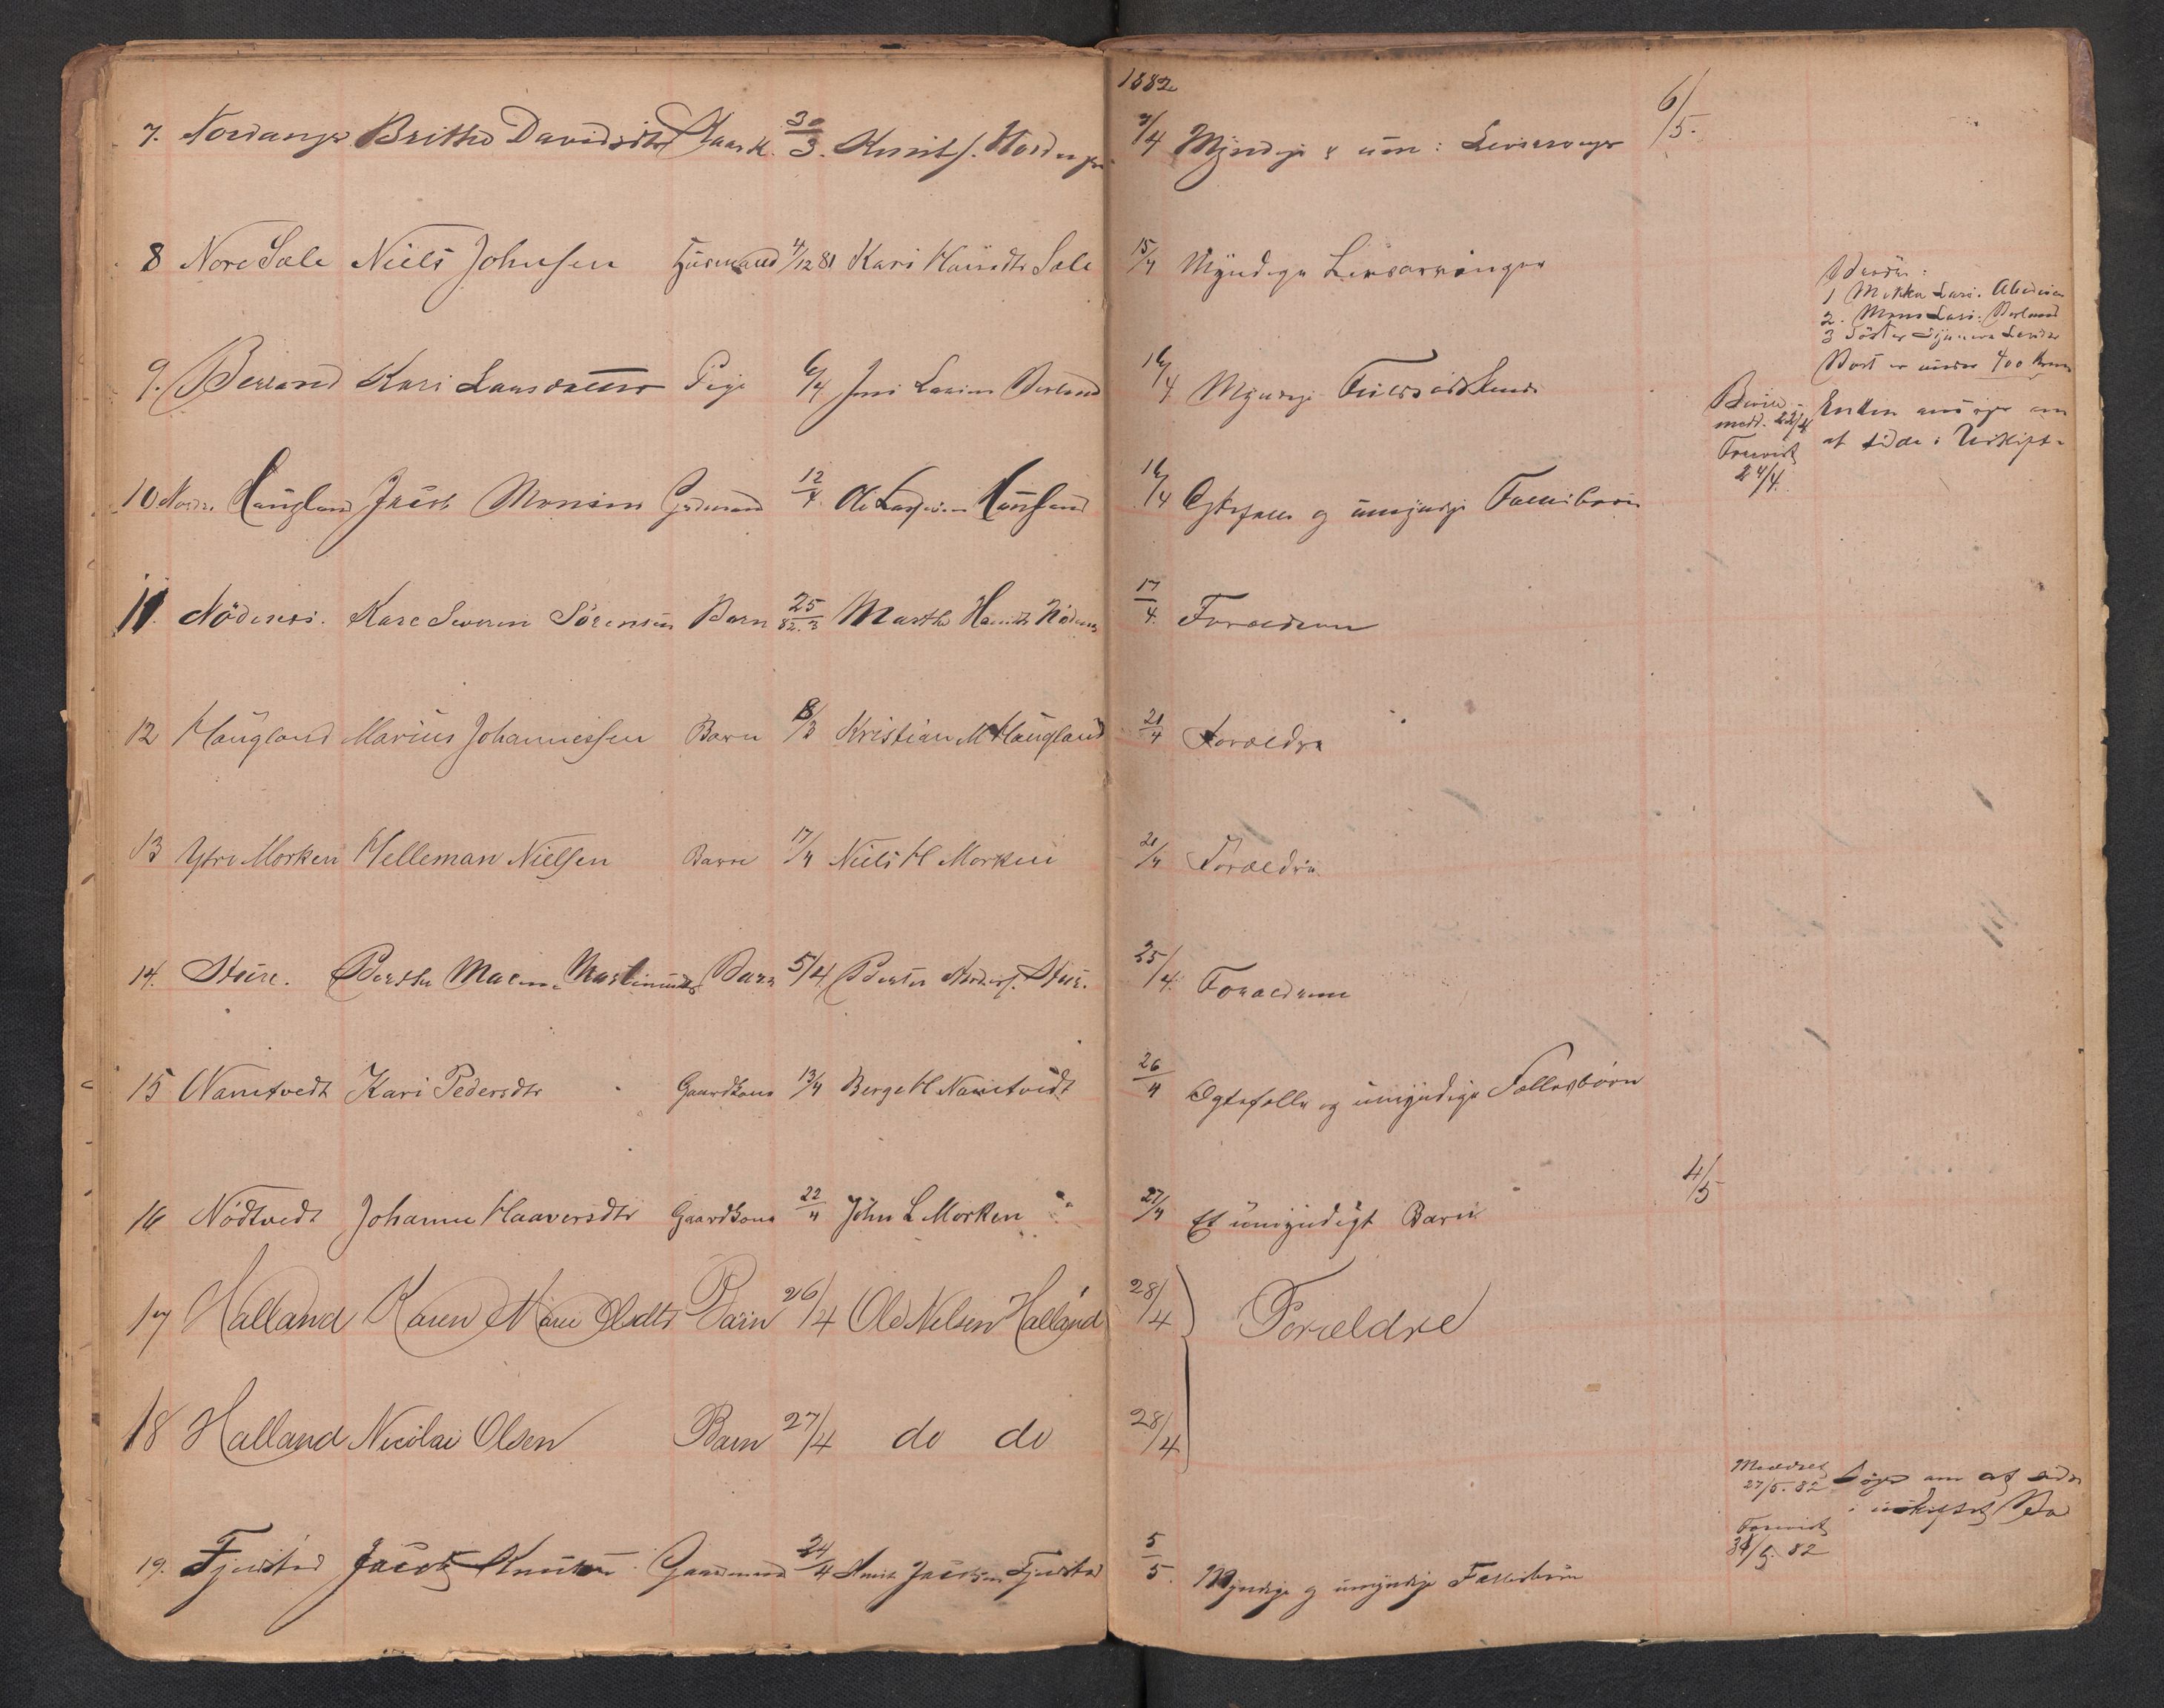 1882
7. Nordanger Britha Davidsdtr Kaark. 30/3. Knut J. Nordanger 3/4 Myndige & um: Livsarvinger 6/5.
8 Nore Sæle Niels Johnsen Husmand 4/12 81 Kari Knudtr Sæle 15/4 Myndige Livsarvinger
1 Lars.
2. Mons Lars: Berland
3 Söster Lars
Boet er under 400 Kroner
9. Berland Kari Larsdatter Pige 6/4 Jens Larsen Berland 16/4 Myndige
Enken ansøger om
at sidde i Uskifte
medd. 22/4
24/4.
10 Nordre Haugland Jacob Monsen Gdmand 12/4 Ole Haugland 16/4 Egtefælle og umyndige Fællesbörn
11. Nödenes. Kare Severin Sörensen Barn 25/3 82. Martha Nödenes 17/4. Forældrene
12 Haugland Marius Johannessen Barn 8/3 Kristian M Haugland 21/4 Forældre
13 Ytre Morken Helleman Nielsen Barn 17/4 Niels H Morken 21/4 Forældre
14. Sture. Berthe Malene Martinusdtr Barn 5/4 Sture. 25/4. Forældrene
15 Namtvedt Kari Pedersdtr Gaardkone 13/4 Berge H Namtvedt 26/4 Egtefælle og umyndige Fællesbörn
16 Nödtvedt Johanne Haaversdtr Gaardkone 22/4 John L Morken 27/4 Et umyndigt Barn 4/5
17 Halland Karen Marie Olsdtr Barn 26/4 Ole Nelsen Halland 28/4 Forældre
18 Halland Nicolai Olsen Barn 27/4 do do 28/4
Meddelt
27/5. 82 Söger om at sidde
i uskiftet Bo
31/5. 82
19. Fjeldstad Jacob Knutsen Gaardmand 24/4 Knut Jacobsen Fjeldstad 5/5. Myndige og umyndige Fællesbörn